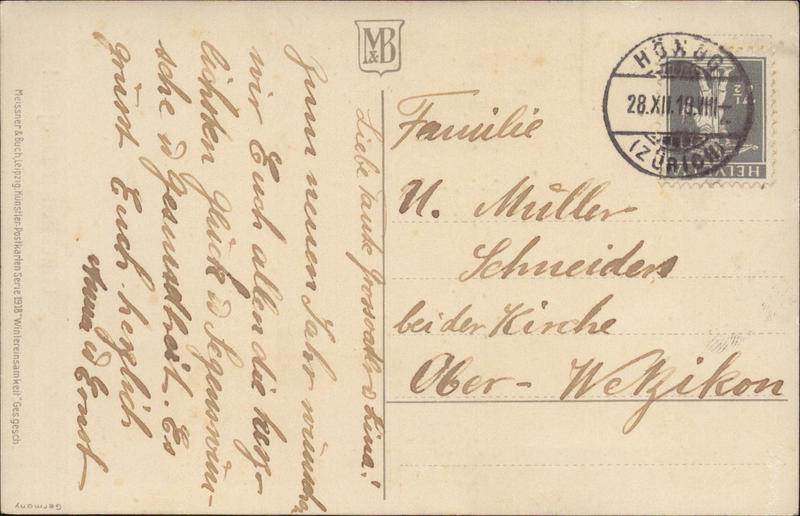 M&B
HÖNGG
28.XII.19.VIII–
(ZÜRICH)
HELVETIA
7½
Familie
U. Müller
Schneiders
bei der Kirche
Ober-Wetzikon
Liebe Tante Grossvatr u Lina!
Zum neuen Jahr wünschen
wir Euch allen die herz-
lichsten Glück u Segenswün-
sche u Gesundheit. Es
grüsst Euch herzlich
Anna u Ernst
Meissner & Buch, Leipzig. Künstler-Postkarten Serie 1918 "Wintereinsamkeit" Ges. gesch
Germany